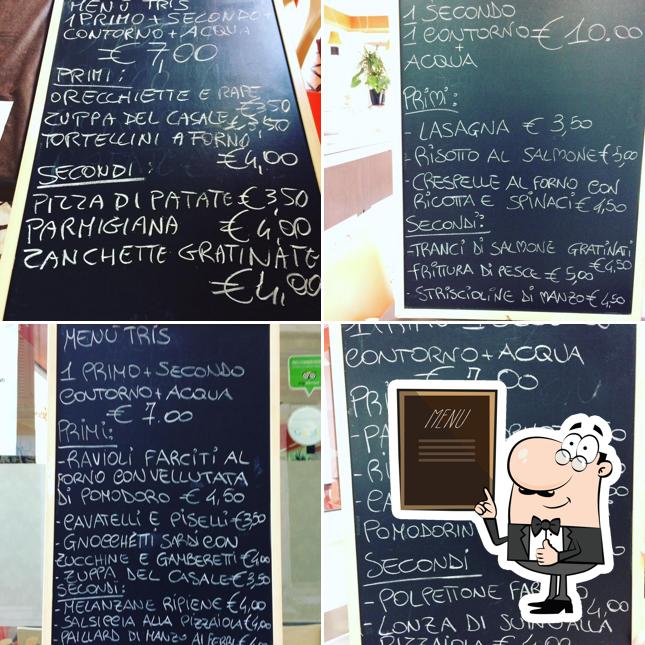 MENÙ TRIS
1 PRIMO + SECONDO +
CONTORNO + ACQUA
€ 7,00
PRIMI:
ORECCHIETTE E RAPE
€3,50
ZUPPA DEL CASALE €3,50
TORTELLINI A FORNO
€4,00
SECONDI:
PIZZA DI PATATE €3,50
PARMIGIANA €4,00
ZANCHETTE GRATINATE
€4,00
1 SECONDO
1 CONTORNO € 10.00
+
ACQUA
PRIMI:
- LASAGNA € 3,50
- RISOTTO AL SALMONE €5,00
- CRESPELLE AL FORNO CON
RICOTTA E SPINACI € 4,50
SECONDI:
- TRANCI DI SALMONE GRATINATI
€4,50
- FRITTURA DI PESCE € 5,00
- STRISCIOLINE DI MANZO € 4,50
MENÙ TRIS
1 PRIMO + SECONDO
CONTORNO + ACQUA
€ 7.00
PRIMI:
- RAVIOLI FARCITI AL
FORNO CON VELLUTATA
DI POMODORO € 4,50
- CAVATELLI E PISELLI €3,50
- GNOCCHETTI SARDI CON
ZUCCHINE E GAMBERETTI €4,00
- ZUPPA DEL CASALE €3,50
SECONDI:
- MELANZANE RIPIENE €4,00
- SALSICCIA ALLA PIZZAIOLA €4,00
- PAILLARD DI MANZO AI FERRI
CONTORNO + ACQUA
€ 7.00
PR
- PA
- RI
- CA
POMODORIN
SECONDI
- POLPETTONE FAR
4,00
- LONZA DI SUINO ALLA
PIZZAIOLA € 4,00
MENU